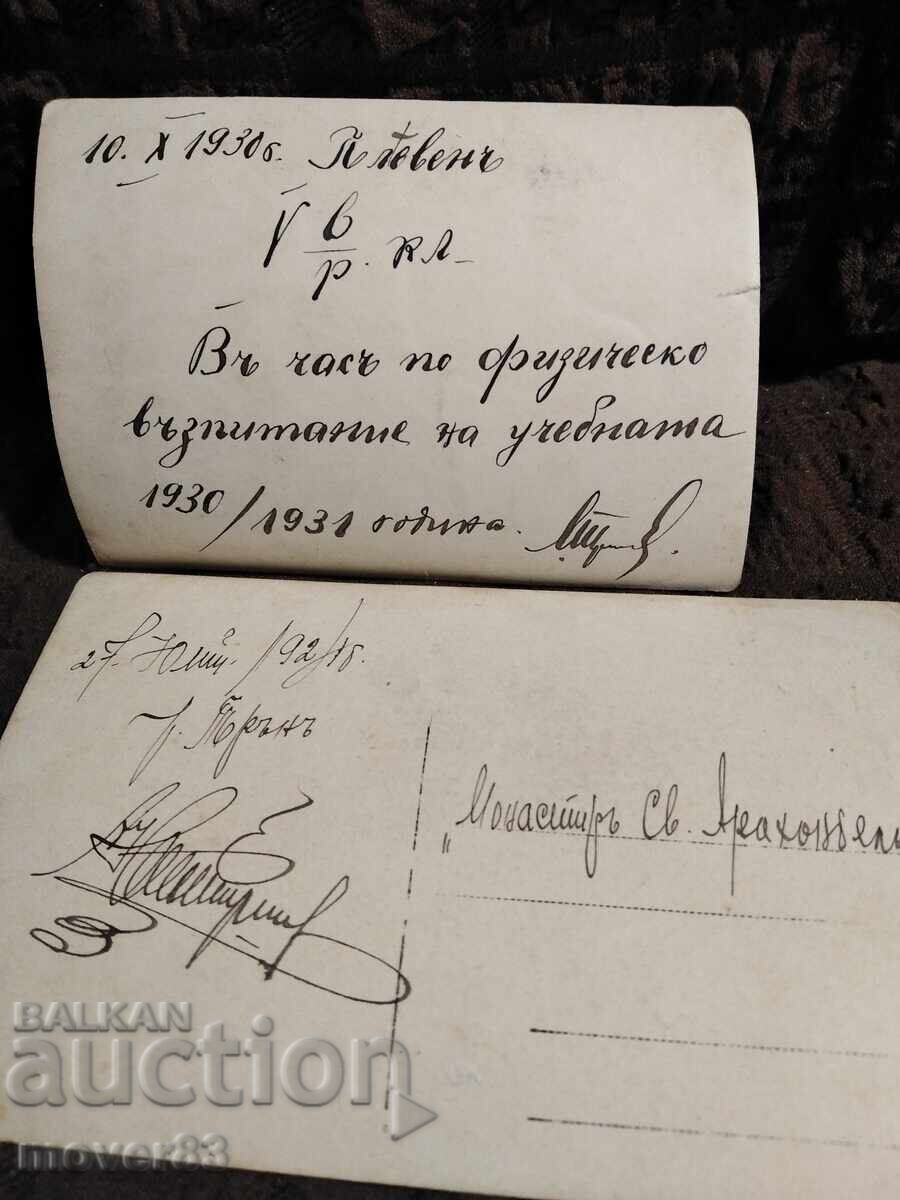 10. X 1930 г. Плѣвенъ
V в/р. кл.
Въ часъ по физическо
възпитание на учебната
1930/1931 година.
27. Юлий. 192
гр. Трънъ
"Монастиръ Св.
BALKAN
auction
mover83